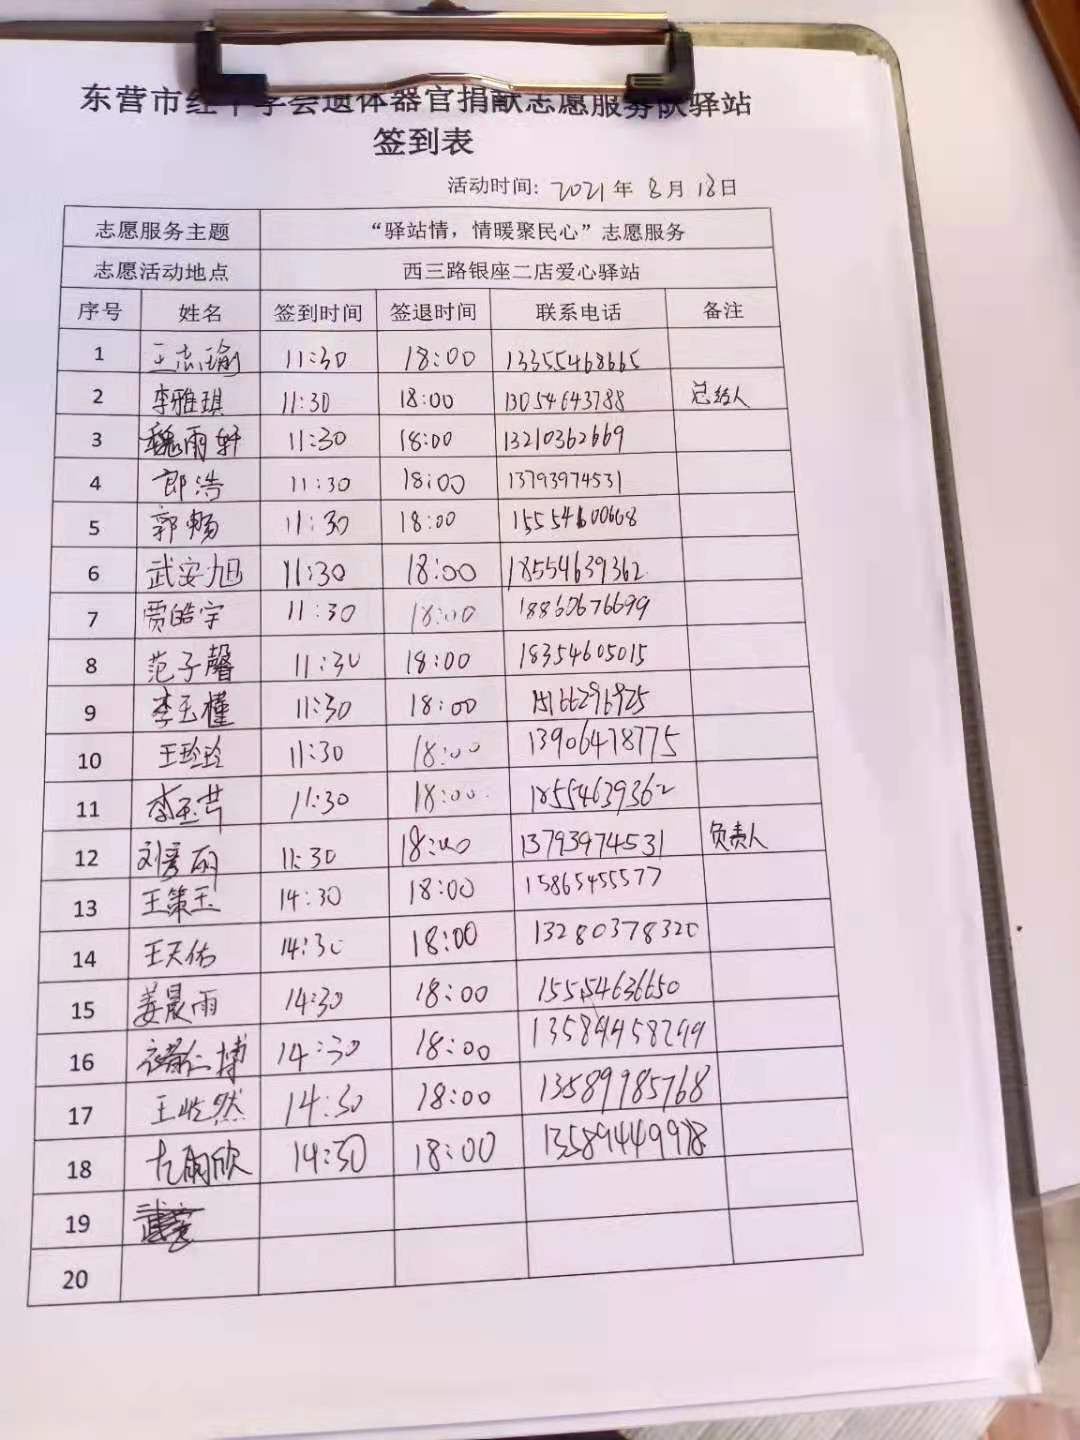 东营市红十字会遗体器官捐献志愿服务队驿站
签到表
活动时间: 2021年8月18日
志愿服务主题 “驿站情，情暖聚民心”志愿服务
志愿活动地点 西三路银座二店爱心驿站
序号 姓名 签到时间 签退时间 联系电话 备注
1 王志瑜 11:30 18:00 13355468665
2 李雅琪 11:30 18:00 13054643788 总结人
3 魏雨轩 11:30 18:00 13210362669
4 郎浩 11:30 18:00 13793974531
5 郭畅 11:30 18:00 15554600608
6 武安旭 11:30 18:00 18554639362
7 贾皓宇 11:30 18:00 18860676699
8 范子馨 11:30 18:00 18354605015
9 李玉槿 11:30 18:00 15166296925
10 王玲玲 11:30 18:00 13906478775
11 11:30 18:00 18554639362
12 刘彦丽 11:30 18:00 13793974531 负责人
13 王策玉 14:30 18:00 15865455577
14 王天佑 14:30 18:00 13280378320
15 姜晨雨 14:30 18:00 15554636650
16 14:30 18:00
17 王屹然 14:30 18:00 13589985768
18 14:30 18:00
19
20